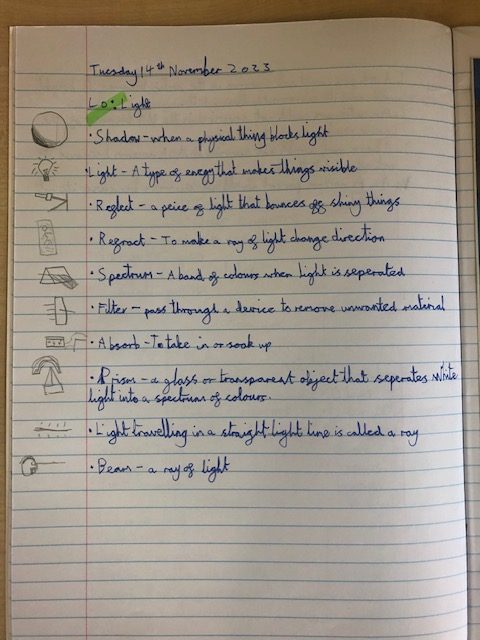 Tuesday 14th November 2023
LO: Light
• Shadow - when a physical thing blocks light
• Light - A type of energy that makes things visible
• Reflect - a peice of light that bounces off shiny things
• Refract - To make a ray of light change direction
• Spectrum - A band of colours when light is seperated
• Filter - pass through a device to remove unwanted material
• Absorb - To take in or soak up
• Prism - a glass or transparent object that seperates white
light into a spectrum of colours.
• Light travelling in a straight light line is called a ray
• Beam - a ray of light